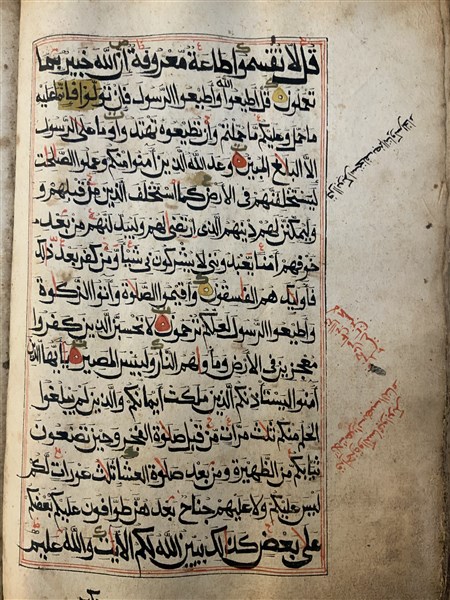 قل لا تقسموا طاعة معروفة ان الله خبير بما
تعملون قل اطيعوا الله واطيعوا الرسول فان تولوا فانما عليه
ما حمل وعليكم ما حملتم وان تطيعوه تهتدوا وما على الرسول
الا البلاغ المبين وعد الله الذين آمنوا منكم وعملوا الصلحت
ليستخلفنهم في الارض كما استخلف الذين من قبلهم و
وليمكنن لهم دينهم الذي ارتضى لهم وليبدلنهم من بعد
خوفهم امنا يعبدونني لا يشركون بي شيئا ومن كفر بعد ذلك
فاوليك هم الفسقون واقيموا الصلوة وآتوا الزكوة
واطيعوا الرسول لعلكم ترحمون لا تحسبن الذين كفروا
معجزين في الارض وماويهم النار ولبئس المصير يأيها الذين
آمنوا ليستاذنكم الذين ملكت ايمانكم والذين لم يبلغوا
الحلم منكم ثلث مرات من قبل صلوة الفجر وحين تضعون
ثيابكم من الظهيرة ومن بعد صلوة العشا ثلث عورات لكم
ليس عليكم ولا عليهم جناح بعدهن طوافون عليكم بعضكم
على بعض كذلك يبين الله لكم الايت والله عليم